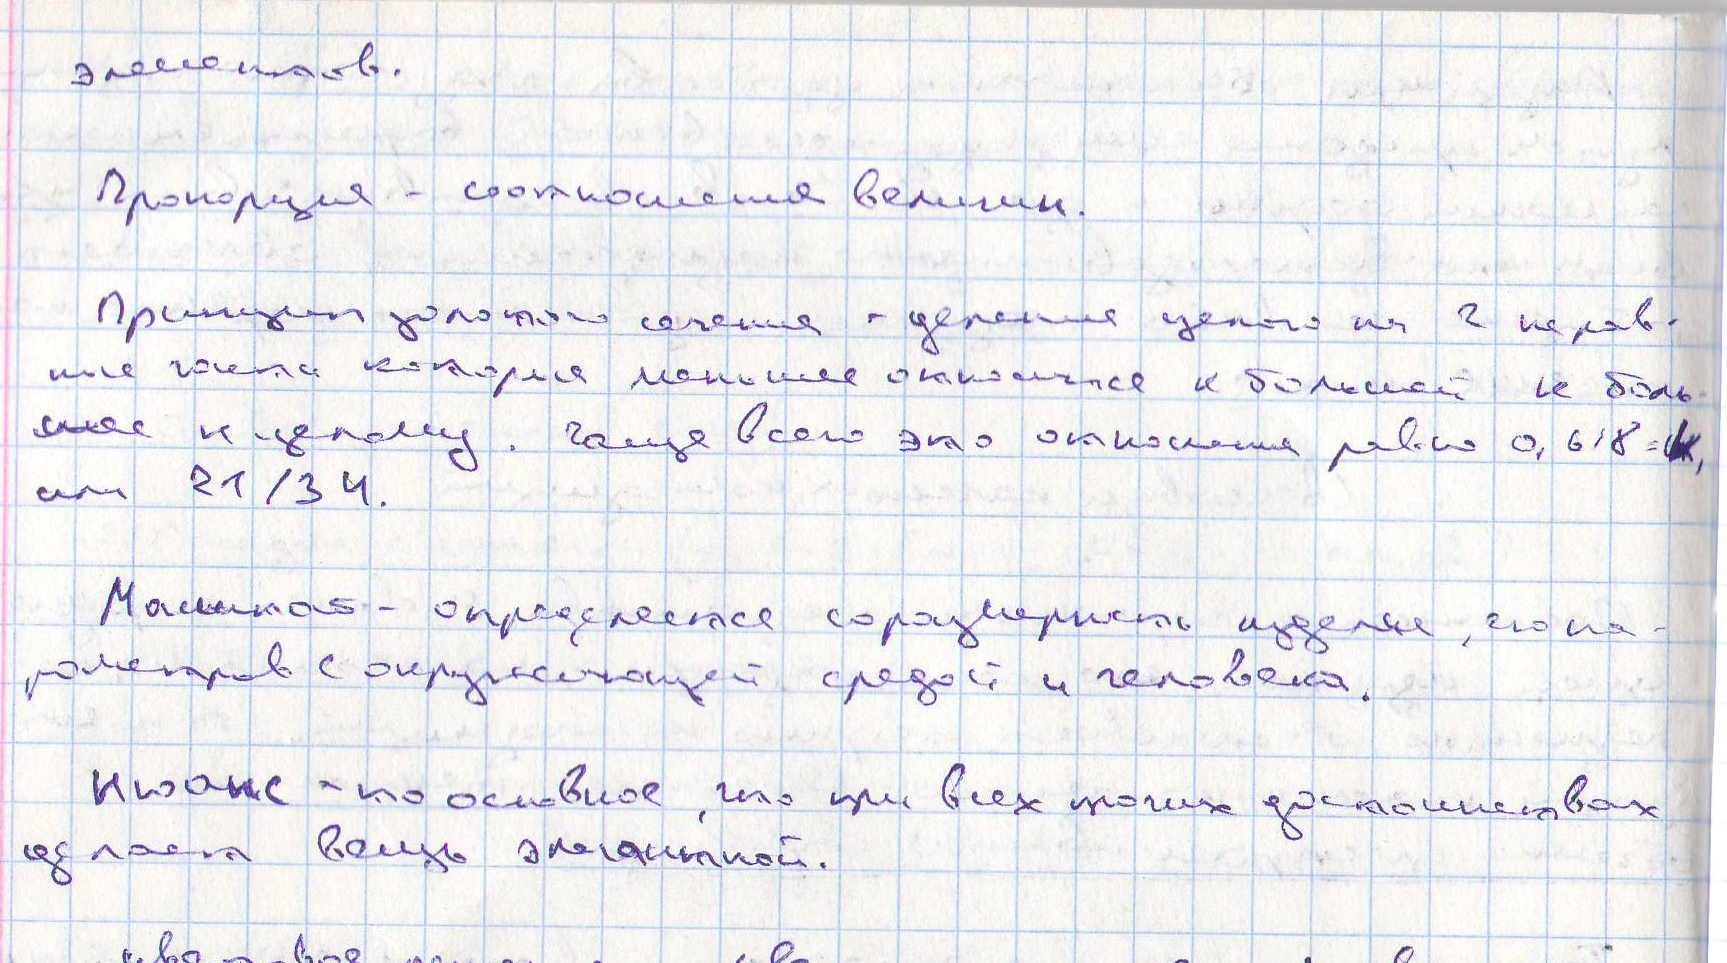 элементов.
Пропорция - соотношения величин.
Принцип золотого сечения - деления целого на 2 нерав-
ные части которая меньшее относится к большей к боль-
шее к целому. Чаще всего это отношения равно 0,618
или 21/34.
Масштаб - определяется соразмерность изделия, его па-
раметров с окружающей средой и человека.
Нюанс - то основное, что при всех прочих достоинствах
делает вещь элегантной.